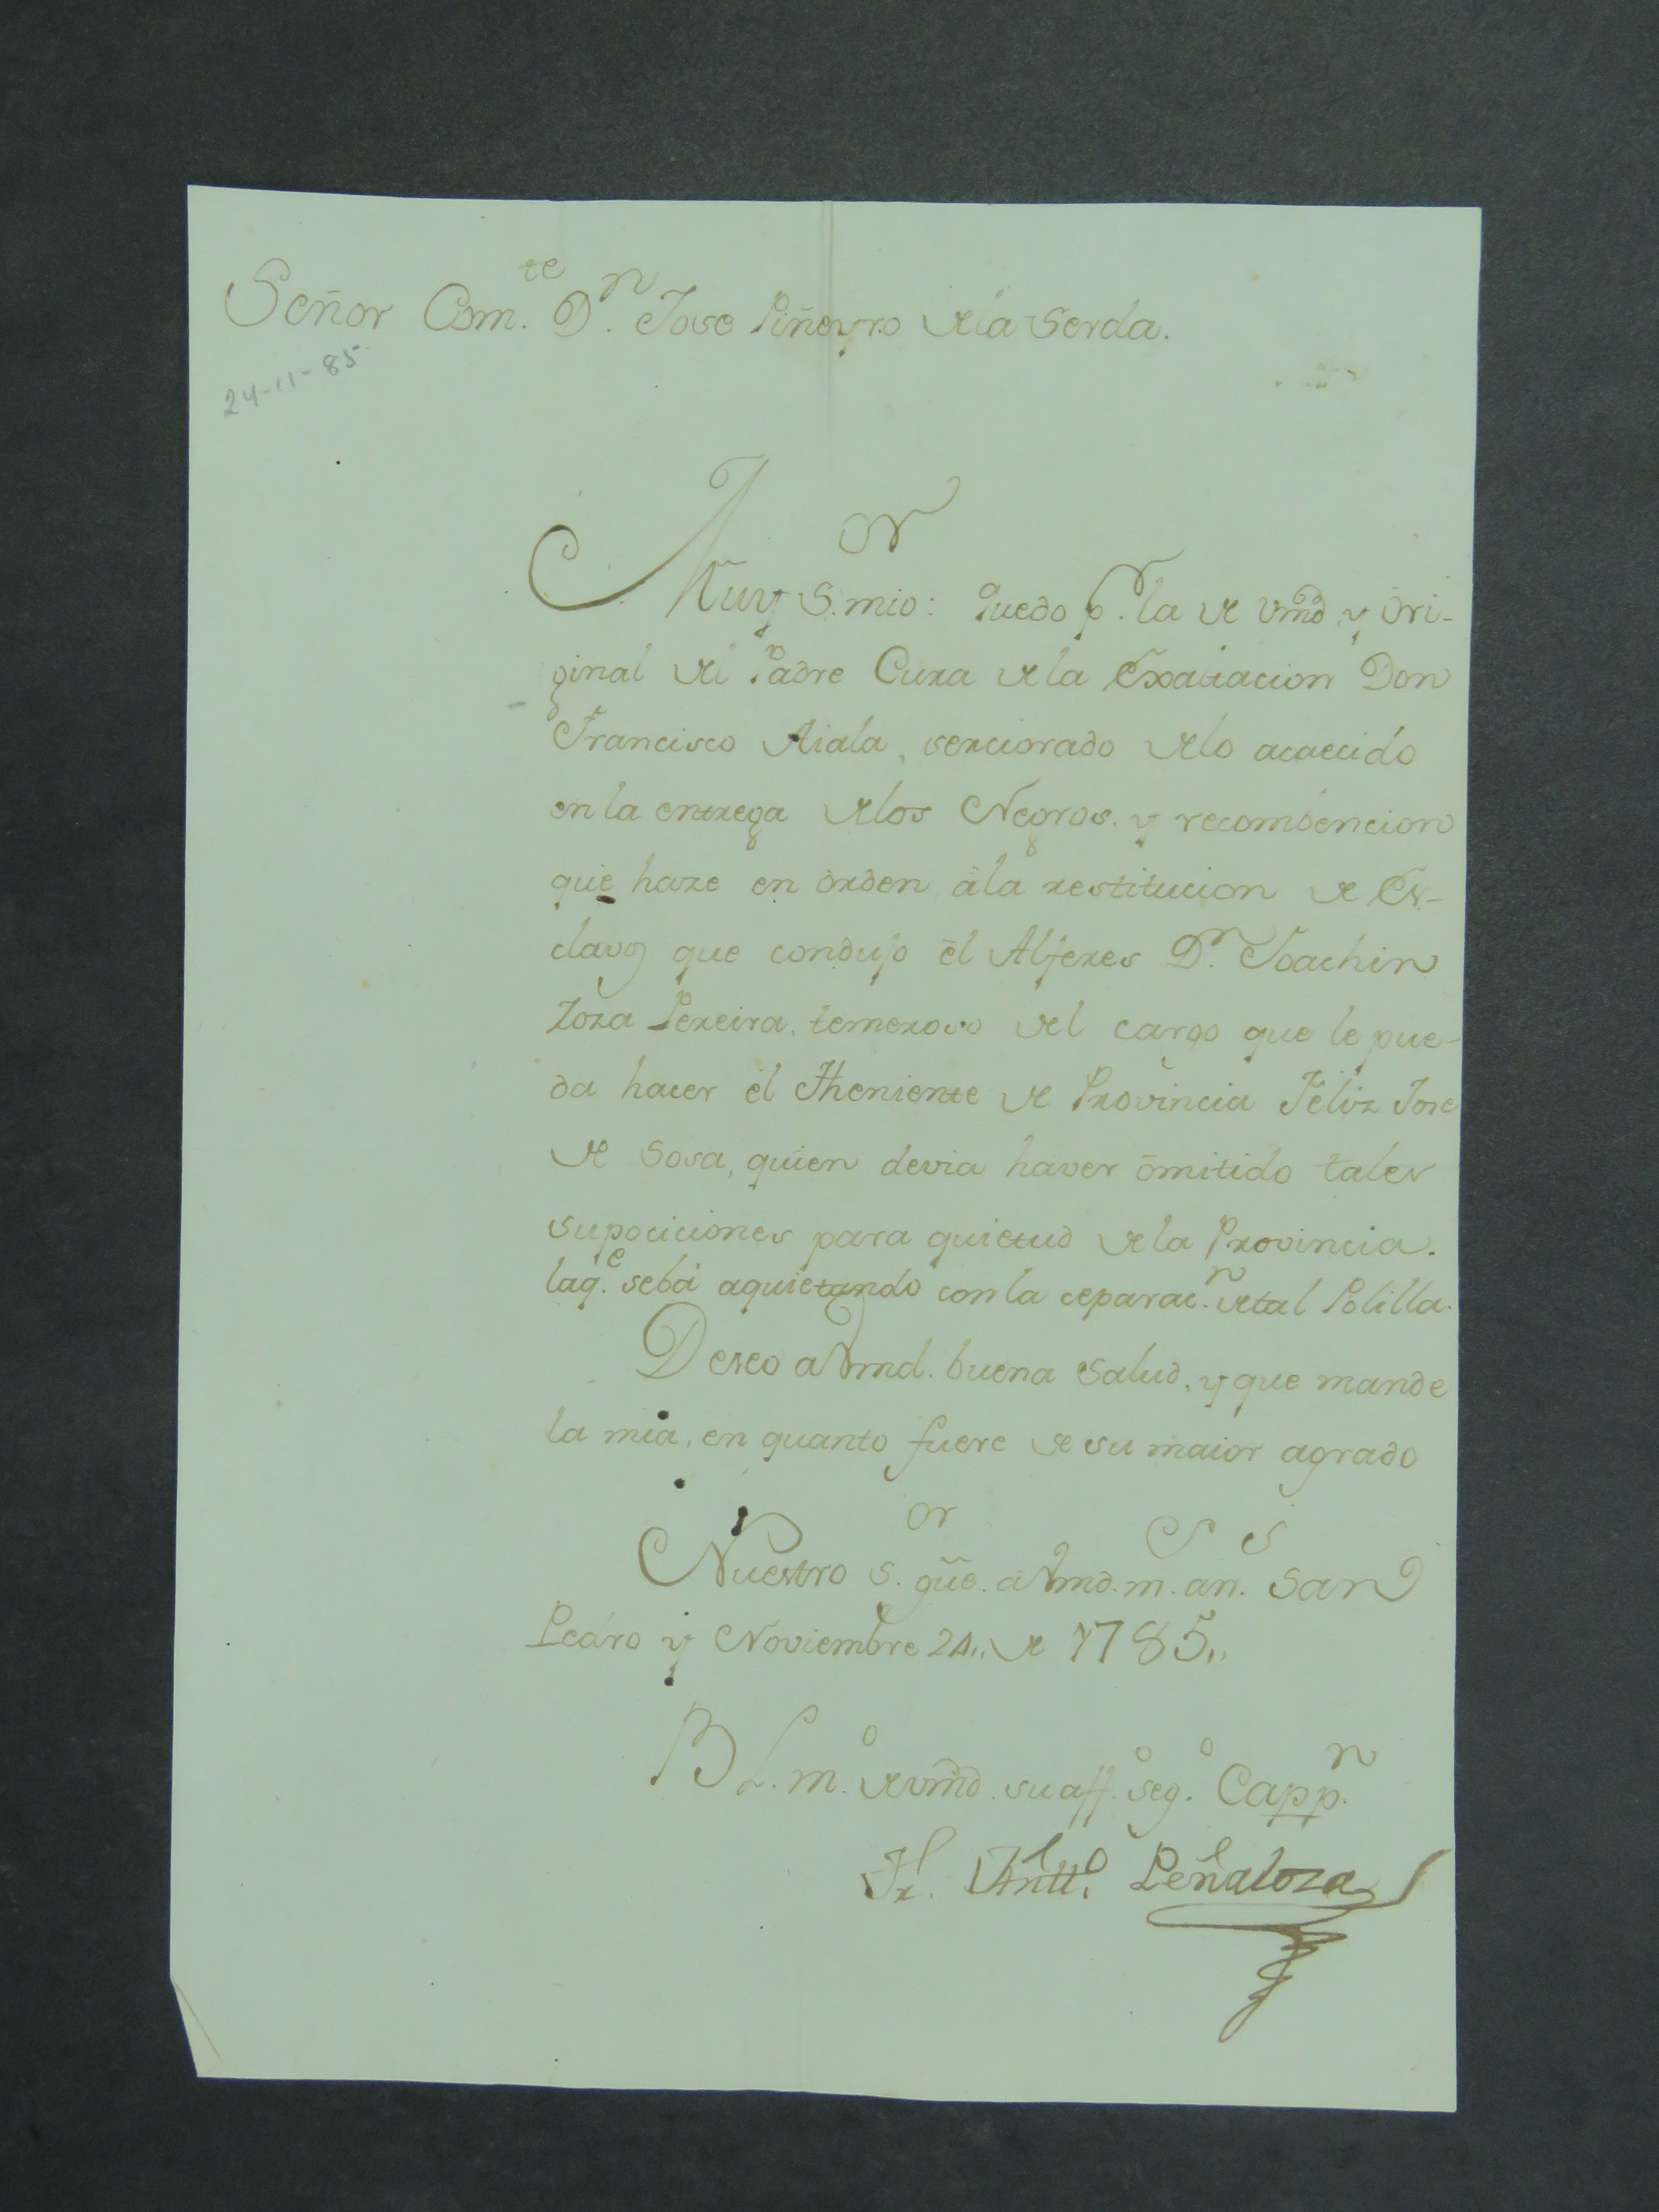 Señor Com.te D.n Jose Piñeyro de la Serda.
24-11-85
Muy S.or mio: Quedo p.r la de Vmd, y Ori-
ginal del Padre Cura de la Exaltacion Don
Francisco Aiala, serciorado de lo acaecido
en la entrega de los Negros. y recombencion
que haze en òrden àla restitucion de Es-
clavos que condujo èl Alferes D.n Joachin
Zoza Pereira, temeroso del cargo que le pue-
da hacer èl Theniente de Provincia Feliz Jose
de Sosa, quien devia haver òmitido tales
supociciones para quietud de la Provincia.
laq.e sebà aquietando con la ceparac.n de tal Polilla.
Deseo a Vmd. buena Salud, y que mande
la mia, en quanto fuere de su maior agrado
Nuestro S.or güe. à Vmd. m.s an.s San
Pedro y Noviembre 24,, de 1785,,
B L. m. de vmd. su aff.o seg.o Capp.n
Fr. Antt.o Peñaloza